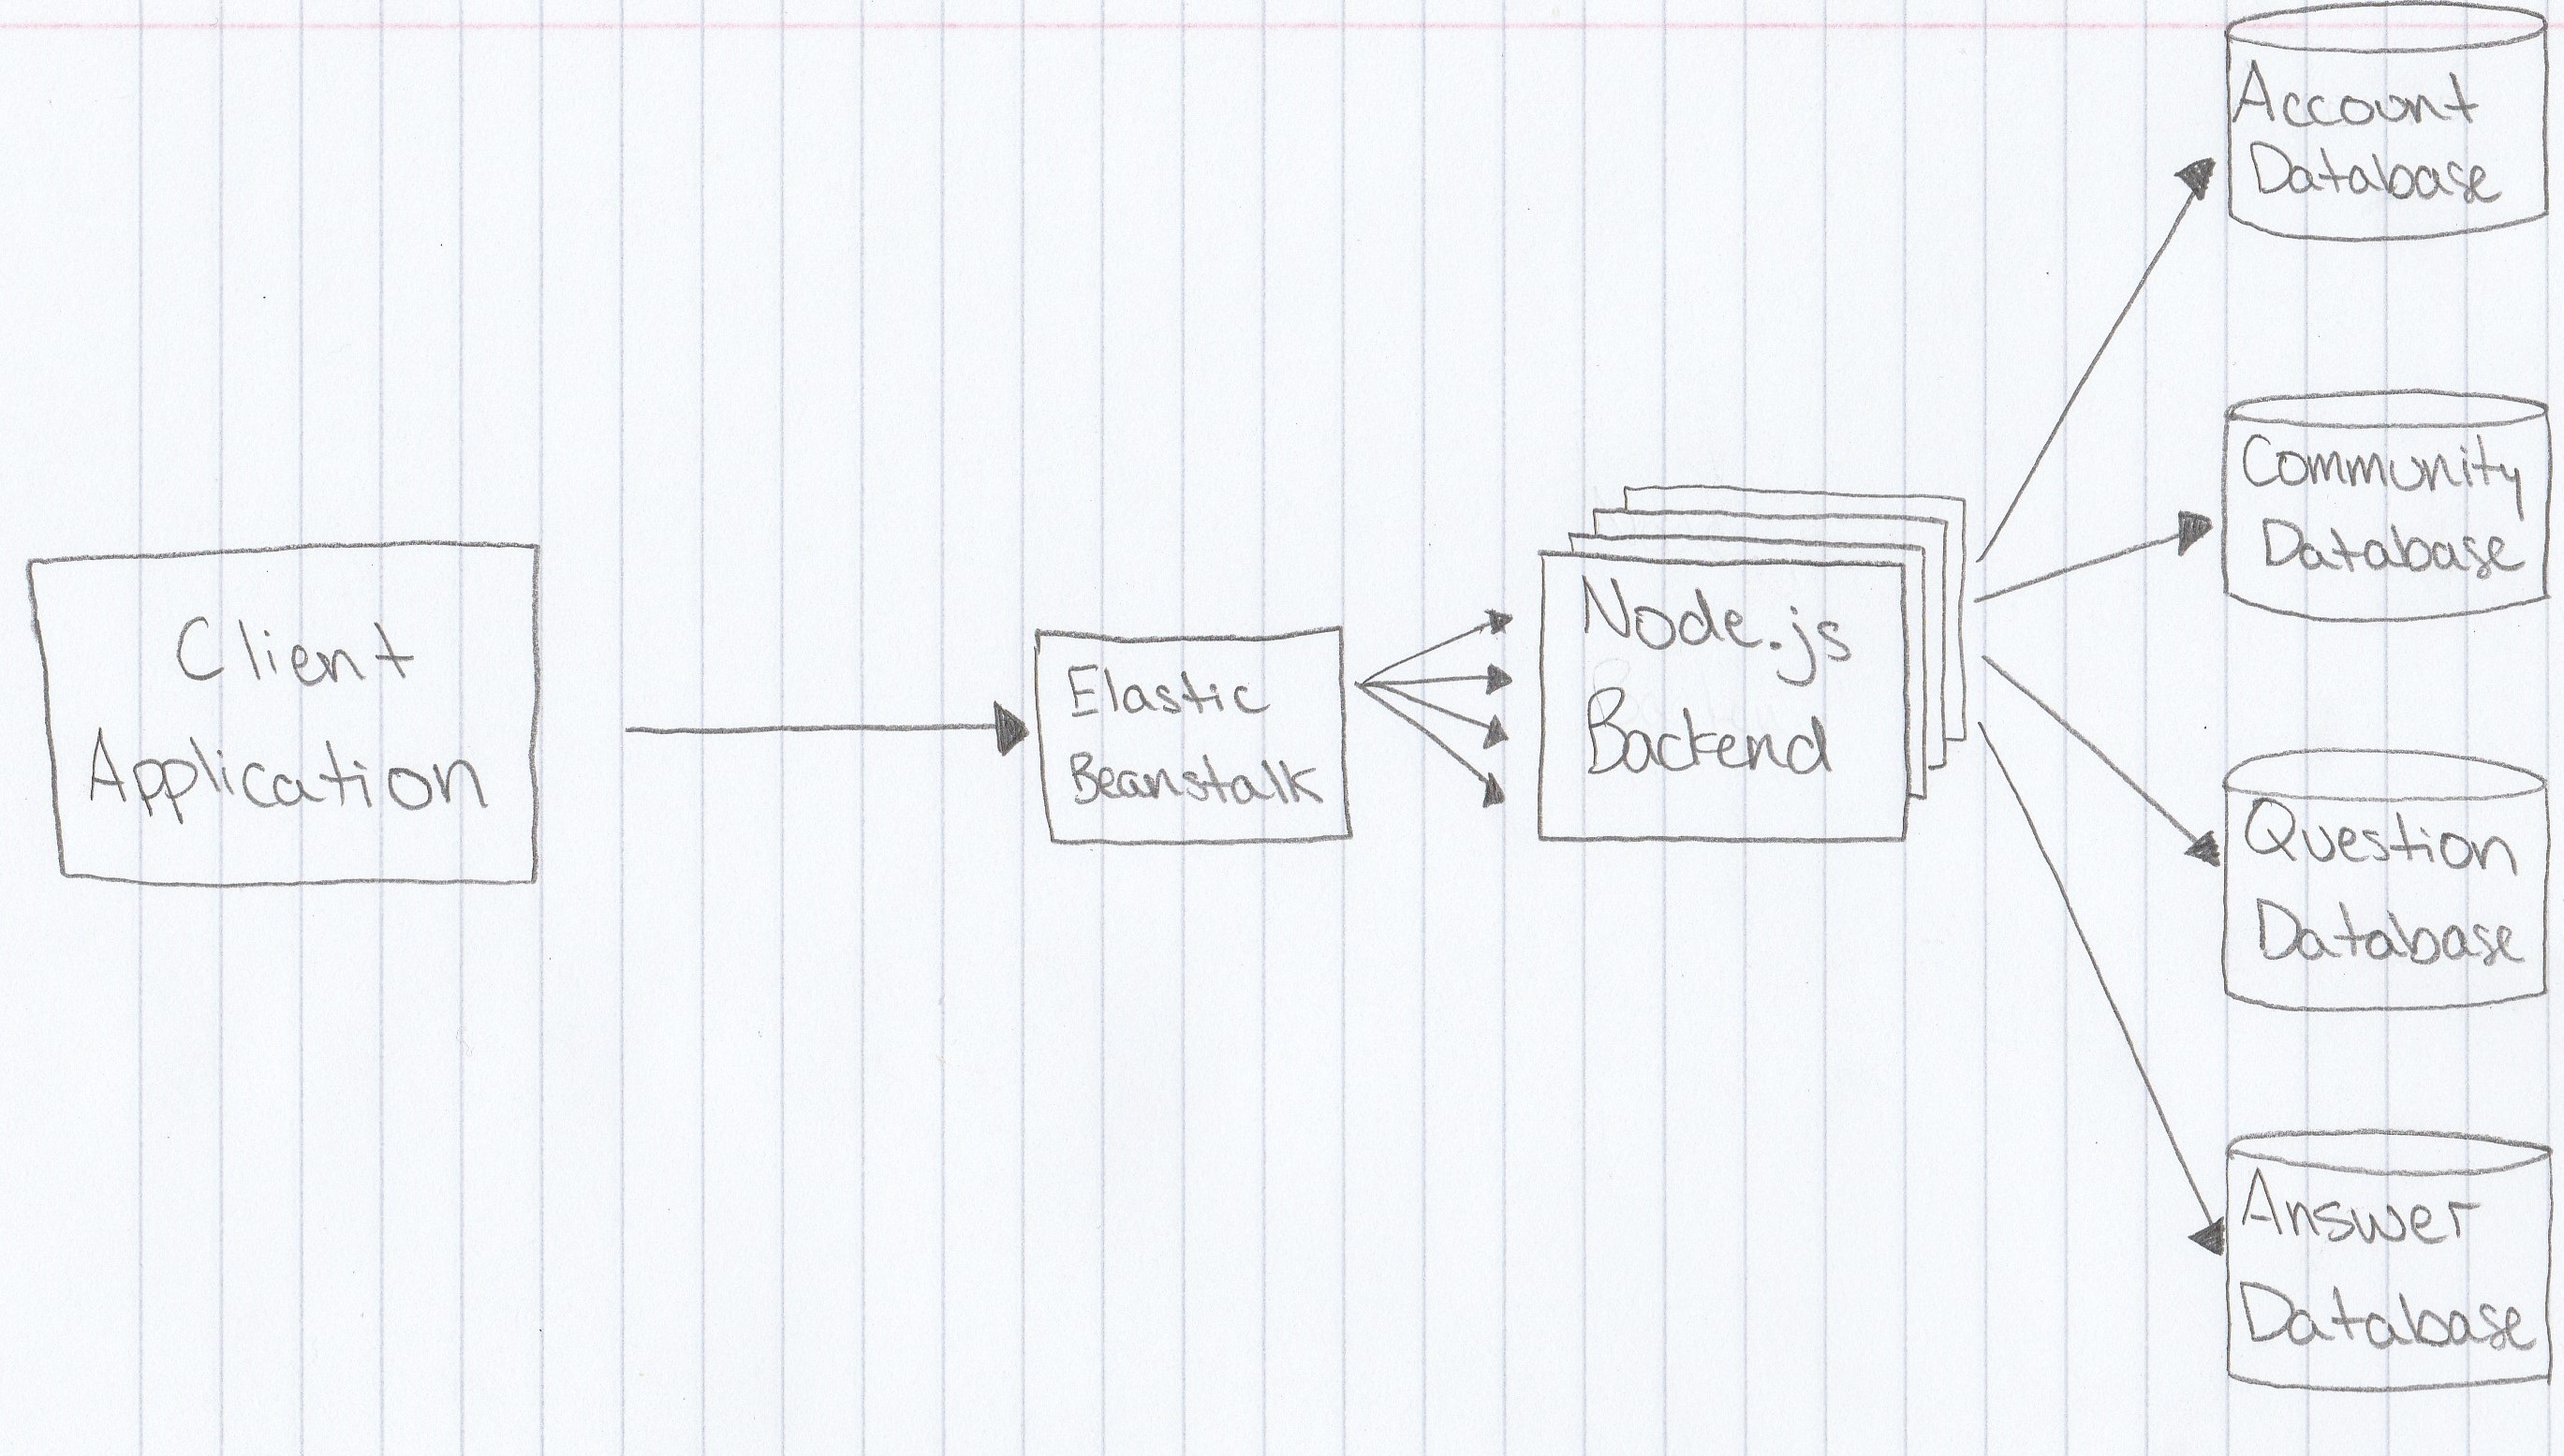 Client
Application
Elastic
Beanstalk
Node.js
Backend
Account
Database
Community
Database
Question
Database
Answer
Database